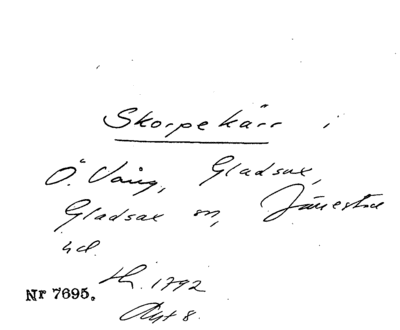 Skorpekärr i
Ö. Vång, Gladsax,
Gladsax sn, Järrestads
hd.
Nr 7695.
1792
Akt 8.